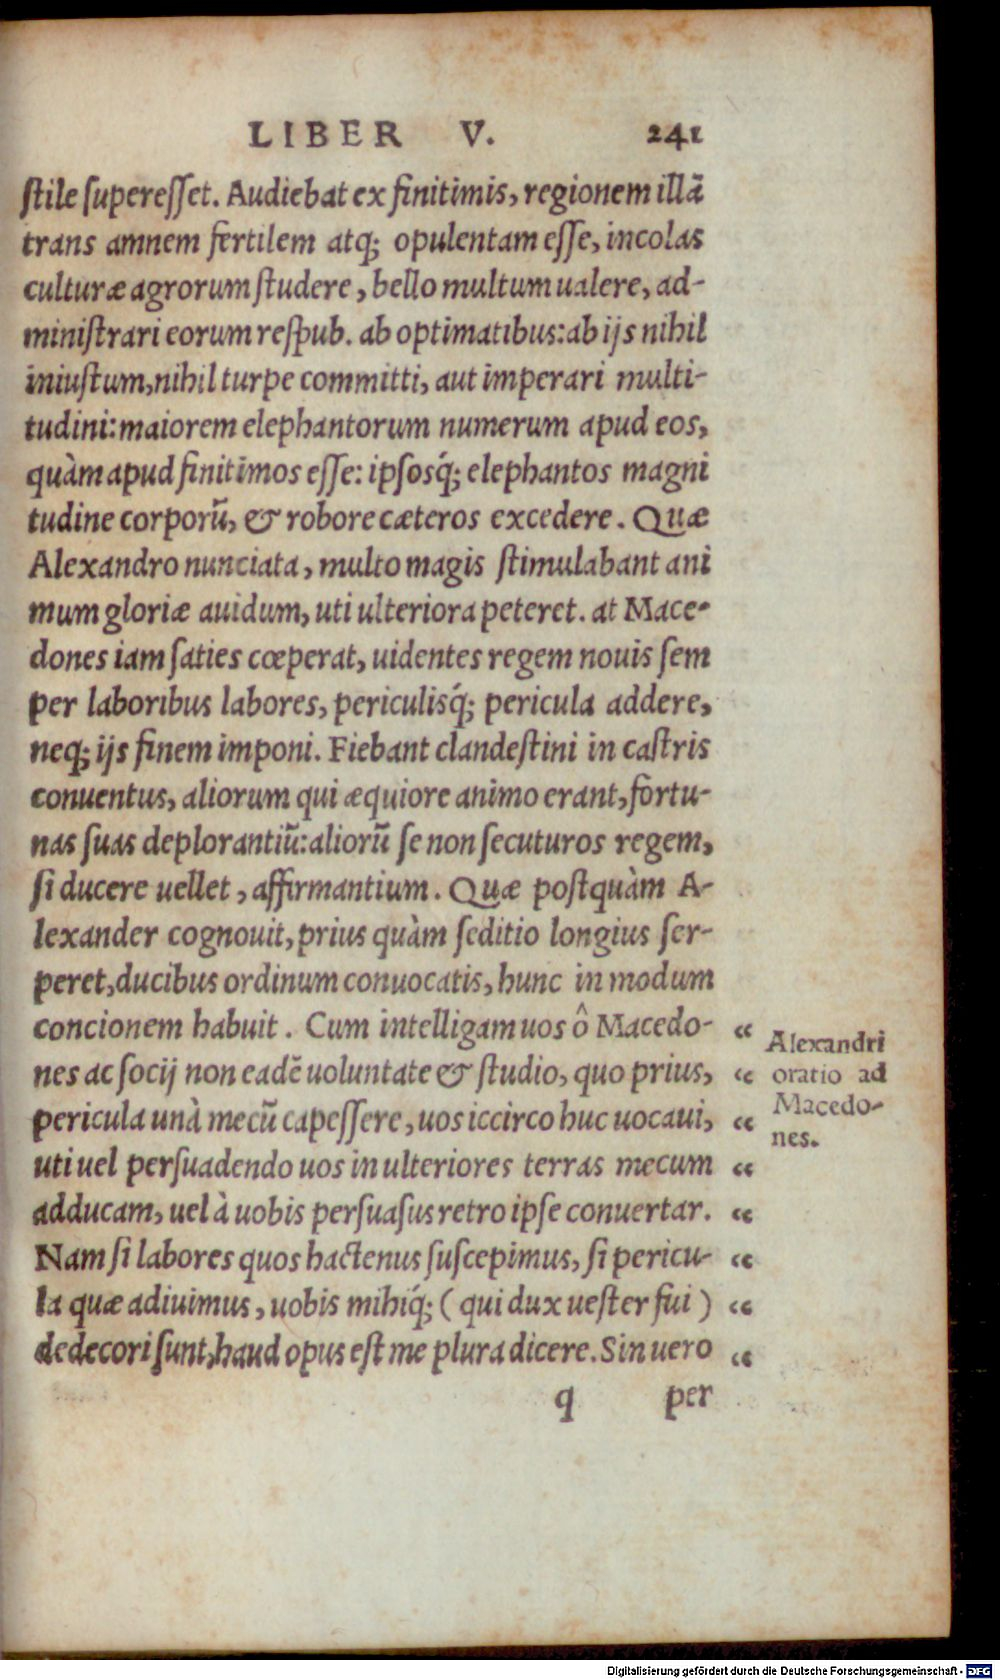 LIBER V. 241
stile superesset. Audiebat ex finitimis, regionem illā
trans amnem fertilem atq; opulentam esse, incolas
culturæ agrorum studere, bello multum ualere, ad-
ministrari eorum respub. ab optimatibus: ab ijs nihil
iniustum, nihil turpe committi, aut imperari multi-
tudini: maiorem elephantorum numerum apud eos,
quàm apud finitimos esse: ipsosq́; elephantos magni
tudine corporū, & robore cæteros excedere. Quæ
Alexandro nunciata, multo magis stimulabant ani
mum gloriæ auidum, uti ulteriora peteret. at Mace-
dones iam saties cœperat, uidentes regem nouis sem
per laboribus labores, periculisq́; pericula addere,
neq; ijs finem imponi. Fiebant clandestini in castris
conuentus, aliorum qui æquiore animo erant, fortu-
nas suas deplorantiū: aliorū se non secuturos regem,
si ducere uellet, affirmantium. Quæ postquàm A-
lexander cognouit, prius quàm seditio longius ser-
peret, ducibus ordinum conuocatis, hunc in modum
concionem habuit. Cum intelligam uos ô Macedo- “
nes ac socij non eadē uoluntate & studio, quo prius, “
pericula unà mecū capessere, uos iccirco huc uocaui, “
uti uel persuadendo uos in ulteriores terras mecum “
adducam, uel à uobis persuasus retro ipse conuertar. “
Nam si labores quos hactenus suscepimus, si pericu- “
la quæ adiuimus, uobis mihiq́; (qui dux uester fui) “
dedecori sunt, haud opus est me plura dicere. Sin uero “
q per
Alexandri
oratio ad
Macedo-
nes.
Digitalisierung gefördert durch die Deutsche Forschungsgemeinschaft - DFG